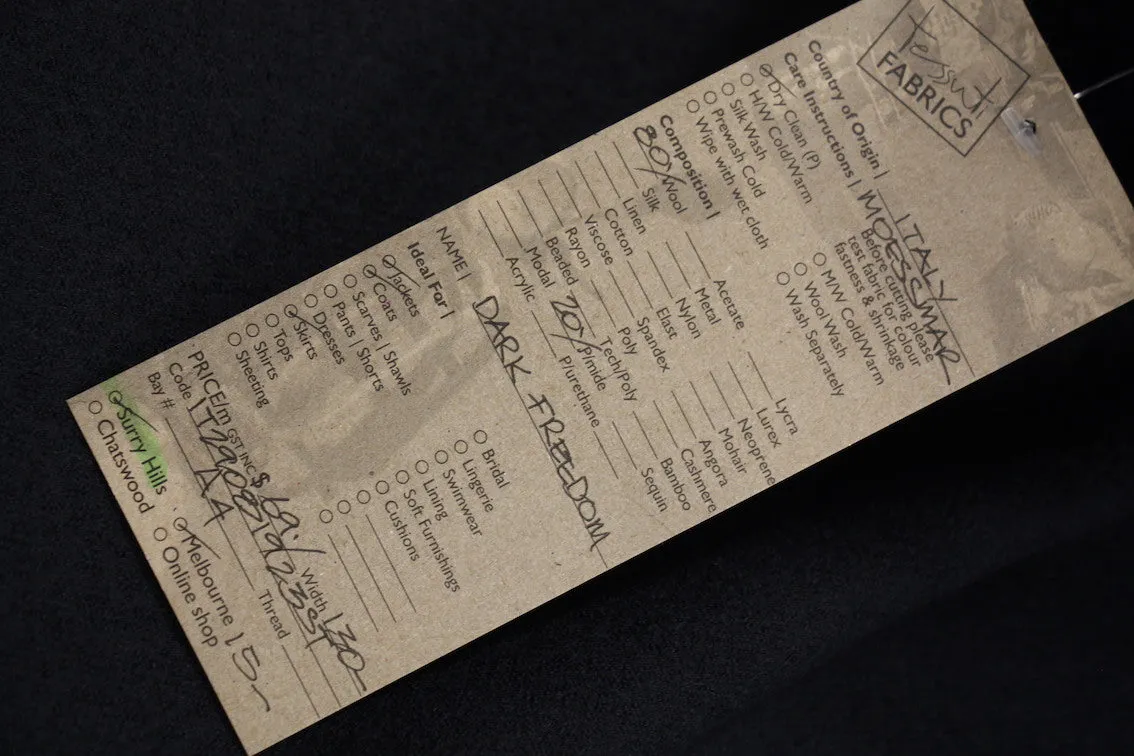 Tessuti
FABRICS
Country of Origin | ITALY
Care Instructions | MOESSMAR
Dry Clean (P)
H/W Cold/Warm
Silk Wash
Prewash Cold
Wipe with wet cloth
Before cutting please
test fabric for colour
fastness & shrinkage
M/W Cold/Warm
Wool Wash
Wash Separately
Composition |
80% Wool
Silk
Linen
Cotton
Viscose
Rayon
Beaded
Modal
Acrylic
Acetate
Metal
Nylon
Elast
Spandex
Poly
Tech/Poly
20% P/mide
P/urethane
Lycra
Lurex
Neoprene
Mohair
Angora
Cashmere
Bamboo
Sequin
NAME | DARK FREEDOM
Ideal For |
Jackets
Coats
Scarves | Shawls
Pants | Shorts
Dresses
Skirts
Tops
Shirts
Sheeting
Bridal
Lingerie
Swimwear
Lining
Soft Furnishings
Cushions
PRICE/m GST INC $69 Width 130
Code
Bay # A4 Thread
Surry Hills Melbourne 15
Chatswood Online shop